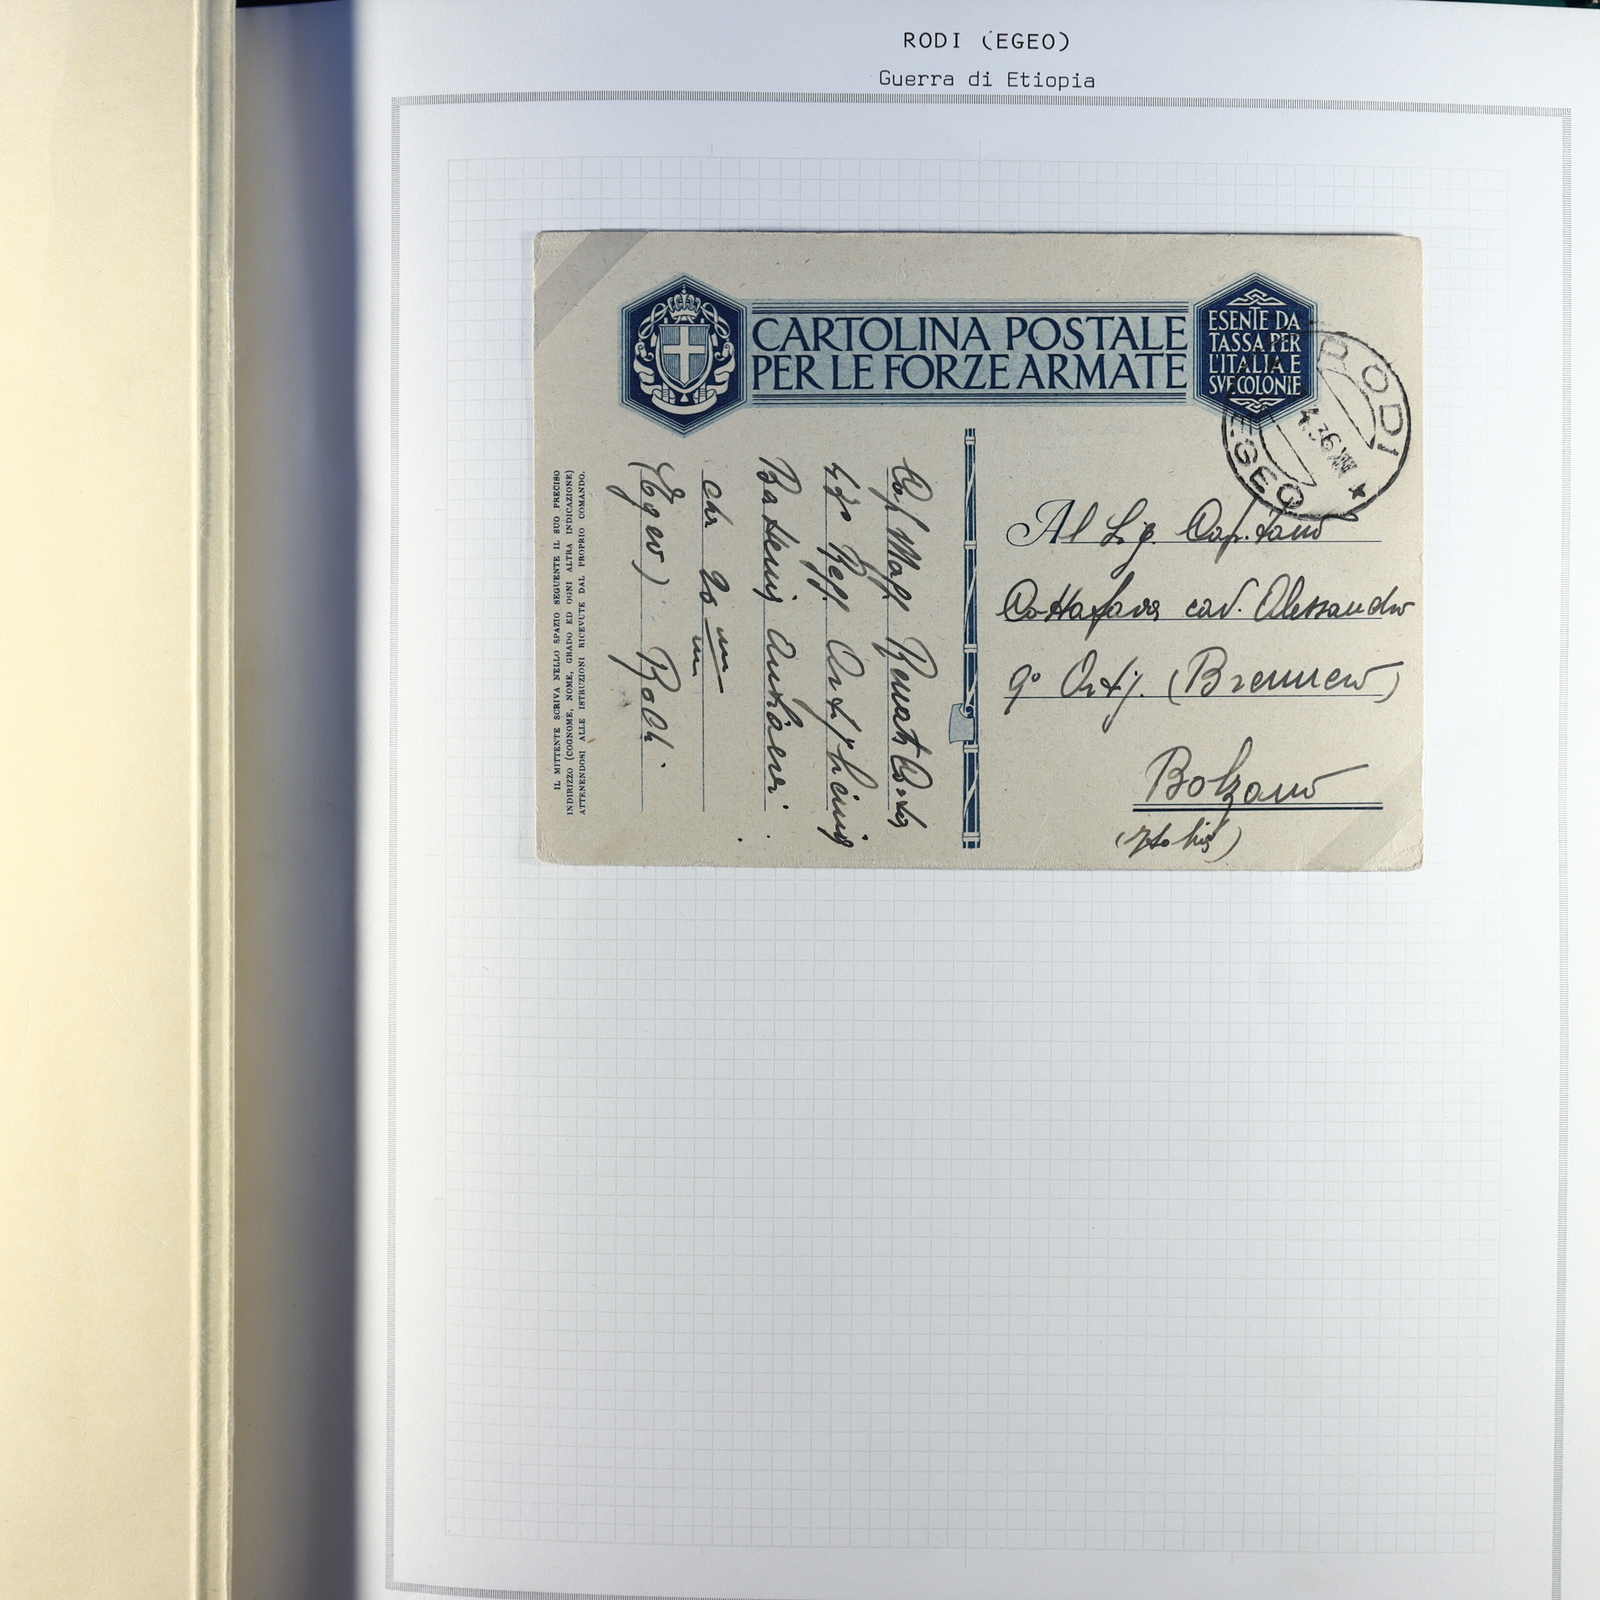 RODI (EGEO)
Guerra di Etiopia
CARTOLINA POSTALE
PER LE FORZE ARMATE
ESENTE DA
TASSA PER
L'ITALIA E
SVE COLONIE
RODI
EGEO
4.36 XIV
IL MITTENTE SCRIVA NELLO SPAZIO SEGUENTE IL SUO PRECISO
INDIRIZZO (COGNOME, NOME, GRADO ED OGNI ALTRA INDICAZIONE)
ATTENENDOSI ALLE ISTRUZIONI RICEVUTE DAL PROPRIO COMANDO.
Cap. Magg.
Regg.
Batteria
da 20 mm
(Egeo) Rodi
Al Sig. Capitano
Cottafava cav. Alessandro
9° Art. (Brennero)
Bolzano
(Italia)